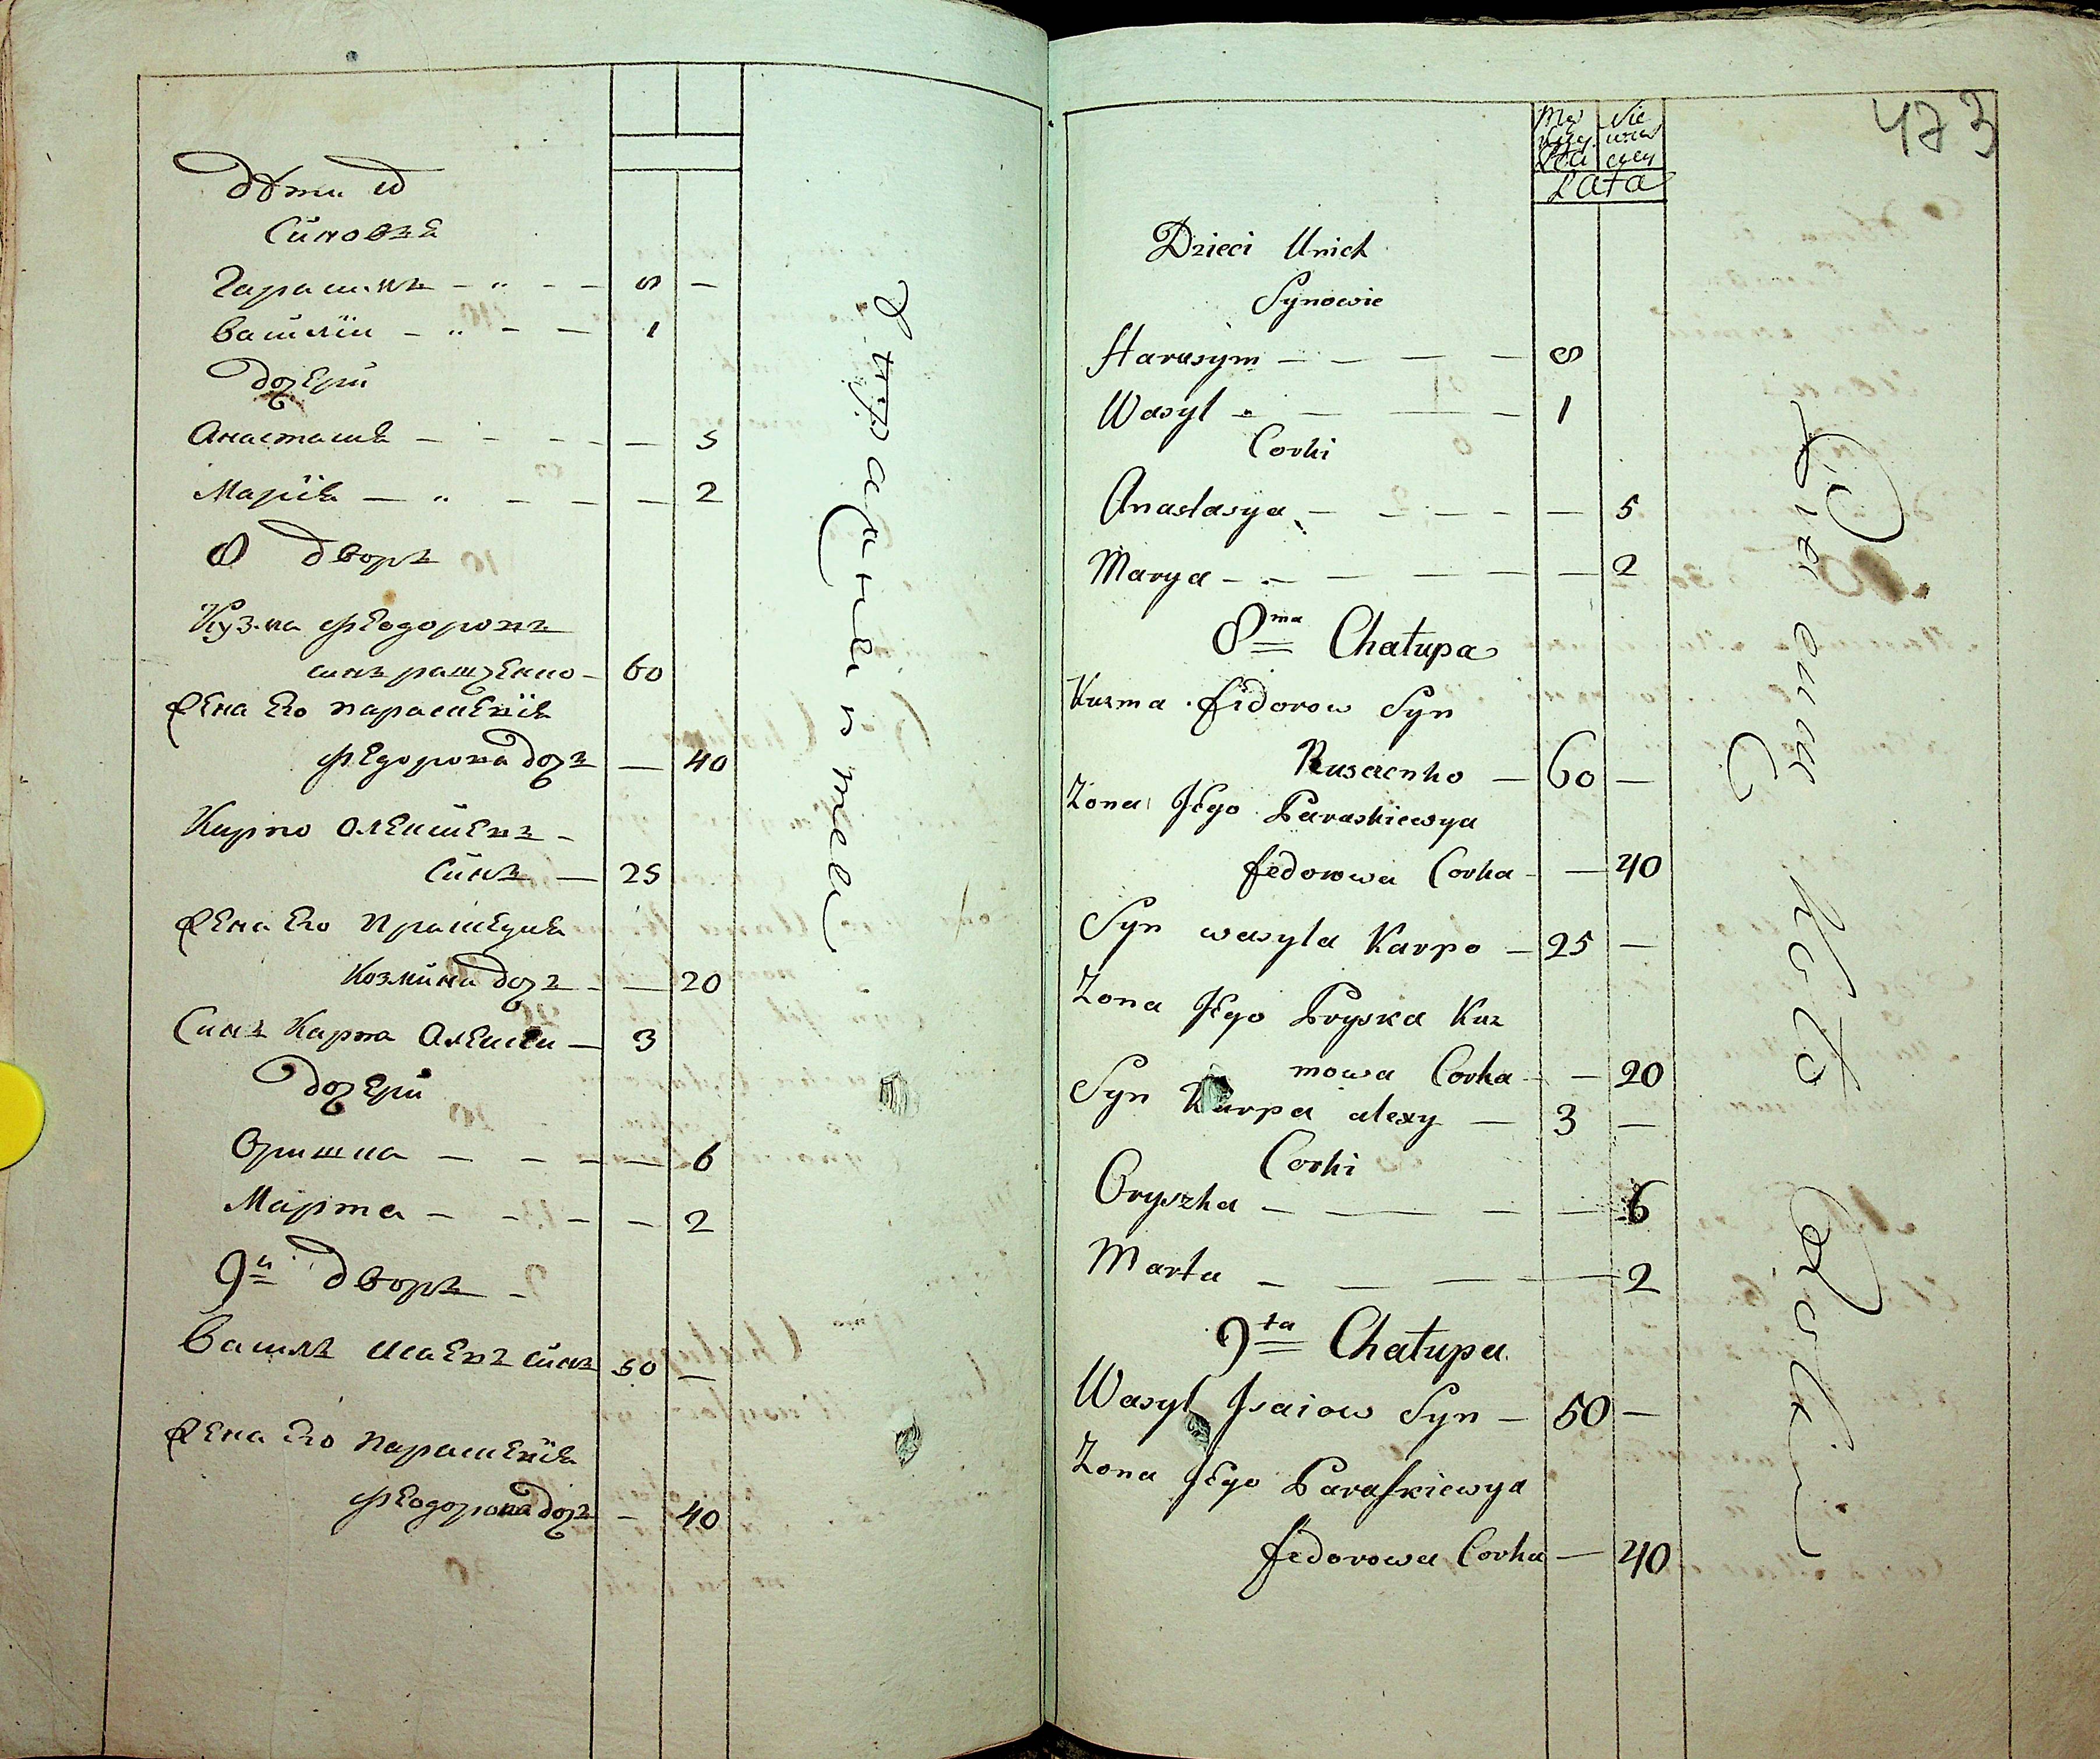 Дѣти ид
Синовѣ
Гарасимъ - „ - - 8 -
Василіи - „ - - 1
дочери
Анастасиѣ - - - - - 5
Маріѣ - „ - - - 2
8 дворъ
Кузма Ѳеодоровъ
синъ ращенко - 60
Жена Его параскевіѣ
Ѳедорова дочъ - 40
Карпо Олексиевъ -
Синъ - 25
Жена Его
Козмина дочъ - - 20
Синъ Карпа Олексеи - 3
дочери
Оришка - - - - 6
Марта - - - - 2
9й дворъ -
Василь исаевъ синъ 50 -
Жена Его параскевіѣ
Ѳеодорова дочъ - 40
473
Lata
Dzieci Unich
Synowie
Harasym - - - - 8
Wasyl - - - - 1
Corki
Anastasya - - - - - 5
Marya - - - - - - 2
8ma Chałupa
Kuzma fidorow Syn
Rusczenko - 60 -
Zona Jego Paraskiewya
fedorowa Corka - - 40
Syn wasyla Karpo - 25 -
Zona Jego Pryska Kuz
mowa Corka - - 20
Syn Karpa alexy - 3 -
Corki
Oryszka - - - - 6
Marta - - - - 2
9ta Chałupa
Wasyl Jsaiow Syn - 50 -
Zona Jego Paraskiewya
fedorowa Corka - 40